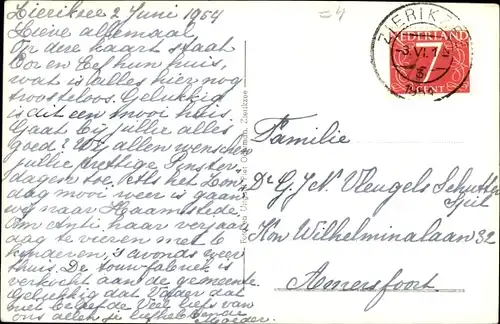 Zierikzee 2 Juni 1954
Lieve allemaal.
Op deze kaart staat
Cor en Eef hun huis,
wat is alles hier nog
troosteloos. Gelukkig
is dit een mooi huis.
Gaat bij jullie alles
goed? Wij allen wenschen
jullie prettige Pinkster-
dagen toe. Als het Zon-
dag mooi weer is gaan
wij naar Haamstede.
Om Anti haar verjaar
dag te vieren met 6
kinderen, 's avonds weer
thuis. De touwfabriek is
verkocht aan de gemeente
Gelukkig dat Vader dat
niet beleefde. Veel liefs van
ons allen je liefhebbende
Moeder.
=4
ZIERIKZEE
-3.VI.
1954
NEDERLAND
7
CENT
Familie
Dr G. J. N. Vleugels Schutter
Kon Wilhelminalaan 32
Amersfoort
Zierikzee